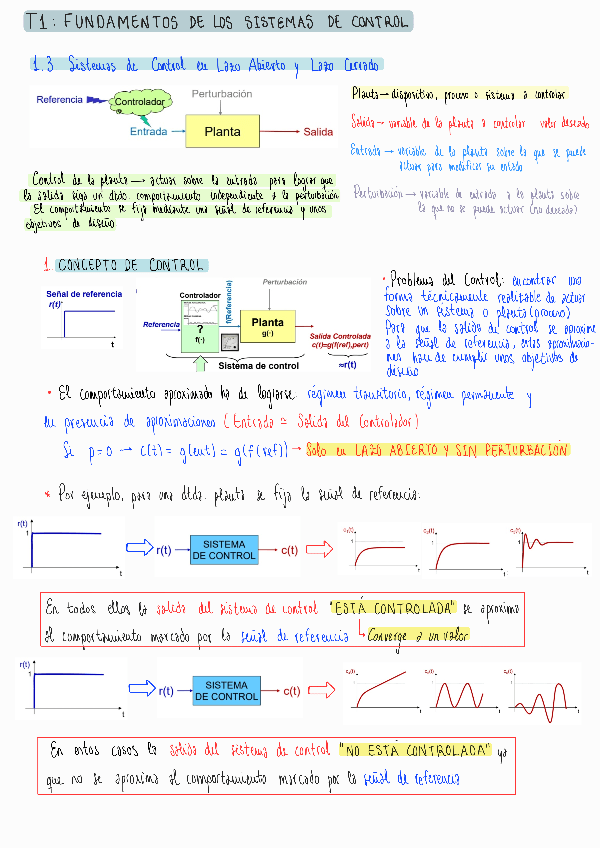 T1: FUNDAMENTOS DE LOS SISTEMAS DE CONTROL
1.3 Sistemas de Control en Lazo Abierto y Lazo Cerrado
Referencia
Controlador
Perturbación
Entrada
Planta
Salida
Planta → dispositivo, proceso o sistema a controlar
Salida → variable de la planta a controlar valor deseado
Entrada → variable de la planta sobre la que se puede
actuar para modificar su estado
Perturbación → variable de entrada a la planta sobre
la que no se puede actuar (no deseada)
Control de la planta → actuar sobre la entrada para lograr que
la salida siga un dtdo. comportamiento independiente a la perturbación
El comportamiento se fija mediante una señal de referencia y unos
objetivos de diseño
1. CONCEPTO DE CONTROL
Señal de referencia
r(t)
t
Controlador
Referencia
?
f(·)
f(Referencia)
Perturbación
Planta
g(·)
Salida Controlada
c(t)=g(f(ref),pert)
Sistema de control
≈r(t)
* Problema del Control: encontrar una
forma técnicamente realizable de actuar
sobre un sistema o planta (proceso)
Para que la salida de control se aproxime
a la señal de referencia, estas aproximacio-
nes han de cumplir unos objetivos de
diseño
* El comportamiento aproximado ha de lograrse: régimen transitorio, régimen permanente y
en presencia de aproximaciones (Entrada ≃ Salida del Controlador)
Si p=0 → c(t) = g(ent) = g(f(ref)) → Solo en LAZO ABIERTO Y SIN PERTURBACIÓN
* Por ejemplo, para una dtda. planta se fija la señal de referencia:
r(t)
1
t
r(t)
SISTEMA
DE CONTROL
c(t)
c₁(t)
1
t
c₂(t)
1
t
c₃(t)
1
t
En todos ellos la salida del sistema de control "ESTÁ CONTROLADA" se aproxima
al comportamiento marcado por la señal de referencia ↳ Converge a un valor
r(t)
1
t
r(t)
SISTEMA
DE CONTROL
c(t)
1
t
1
t
1
t
En estos casos la salida del sistema de control "NO ESTÁ CONTROLADA" ya
que no se aproxima al comportamiento marcado por la señal de referencia